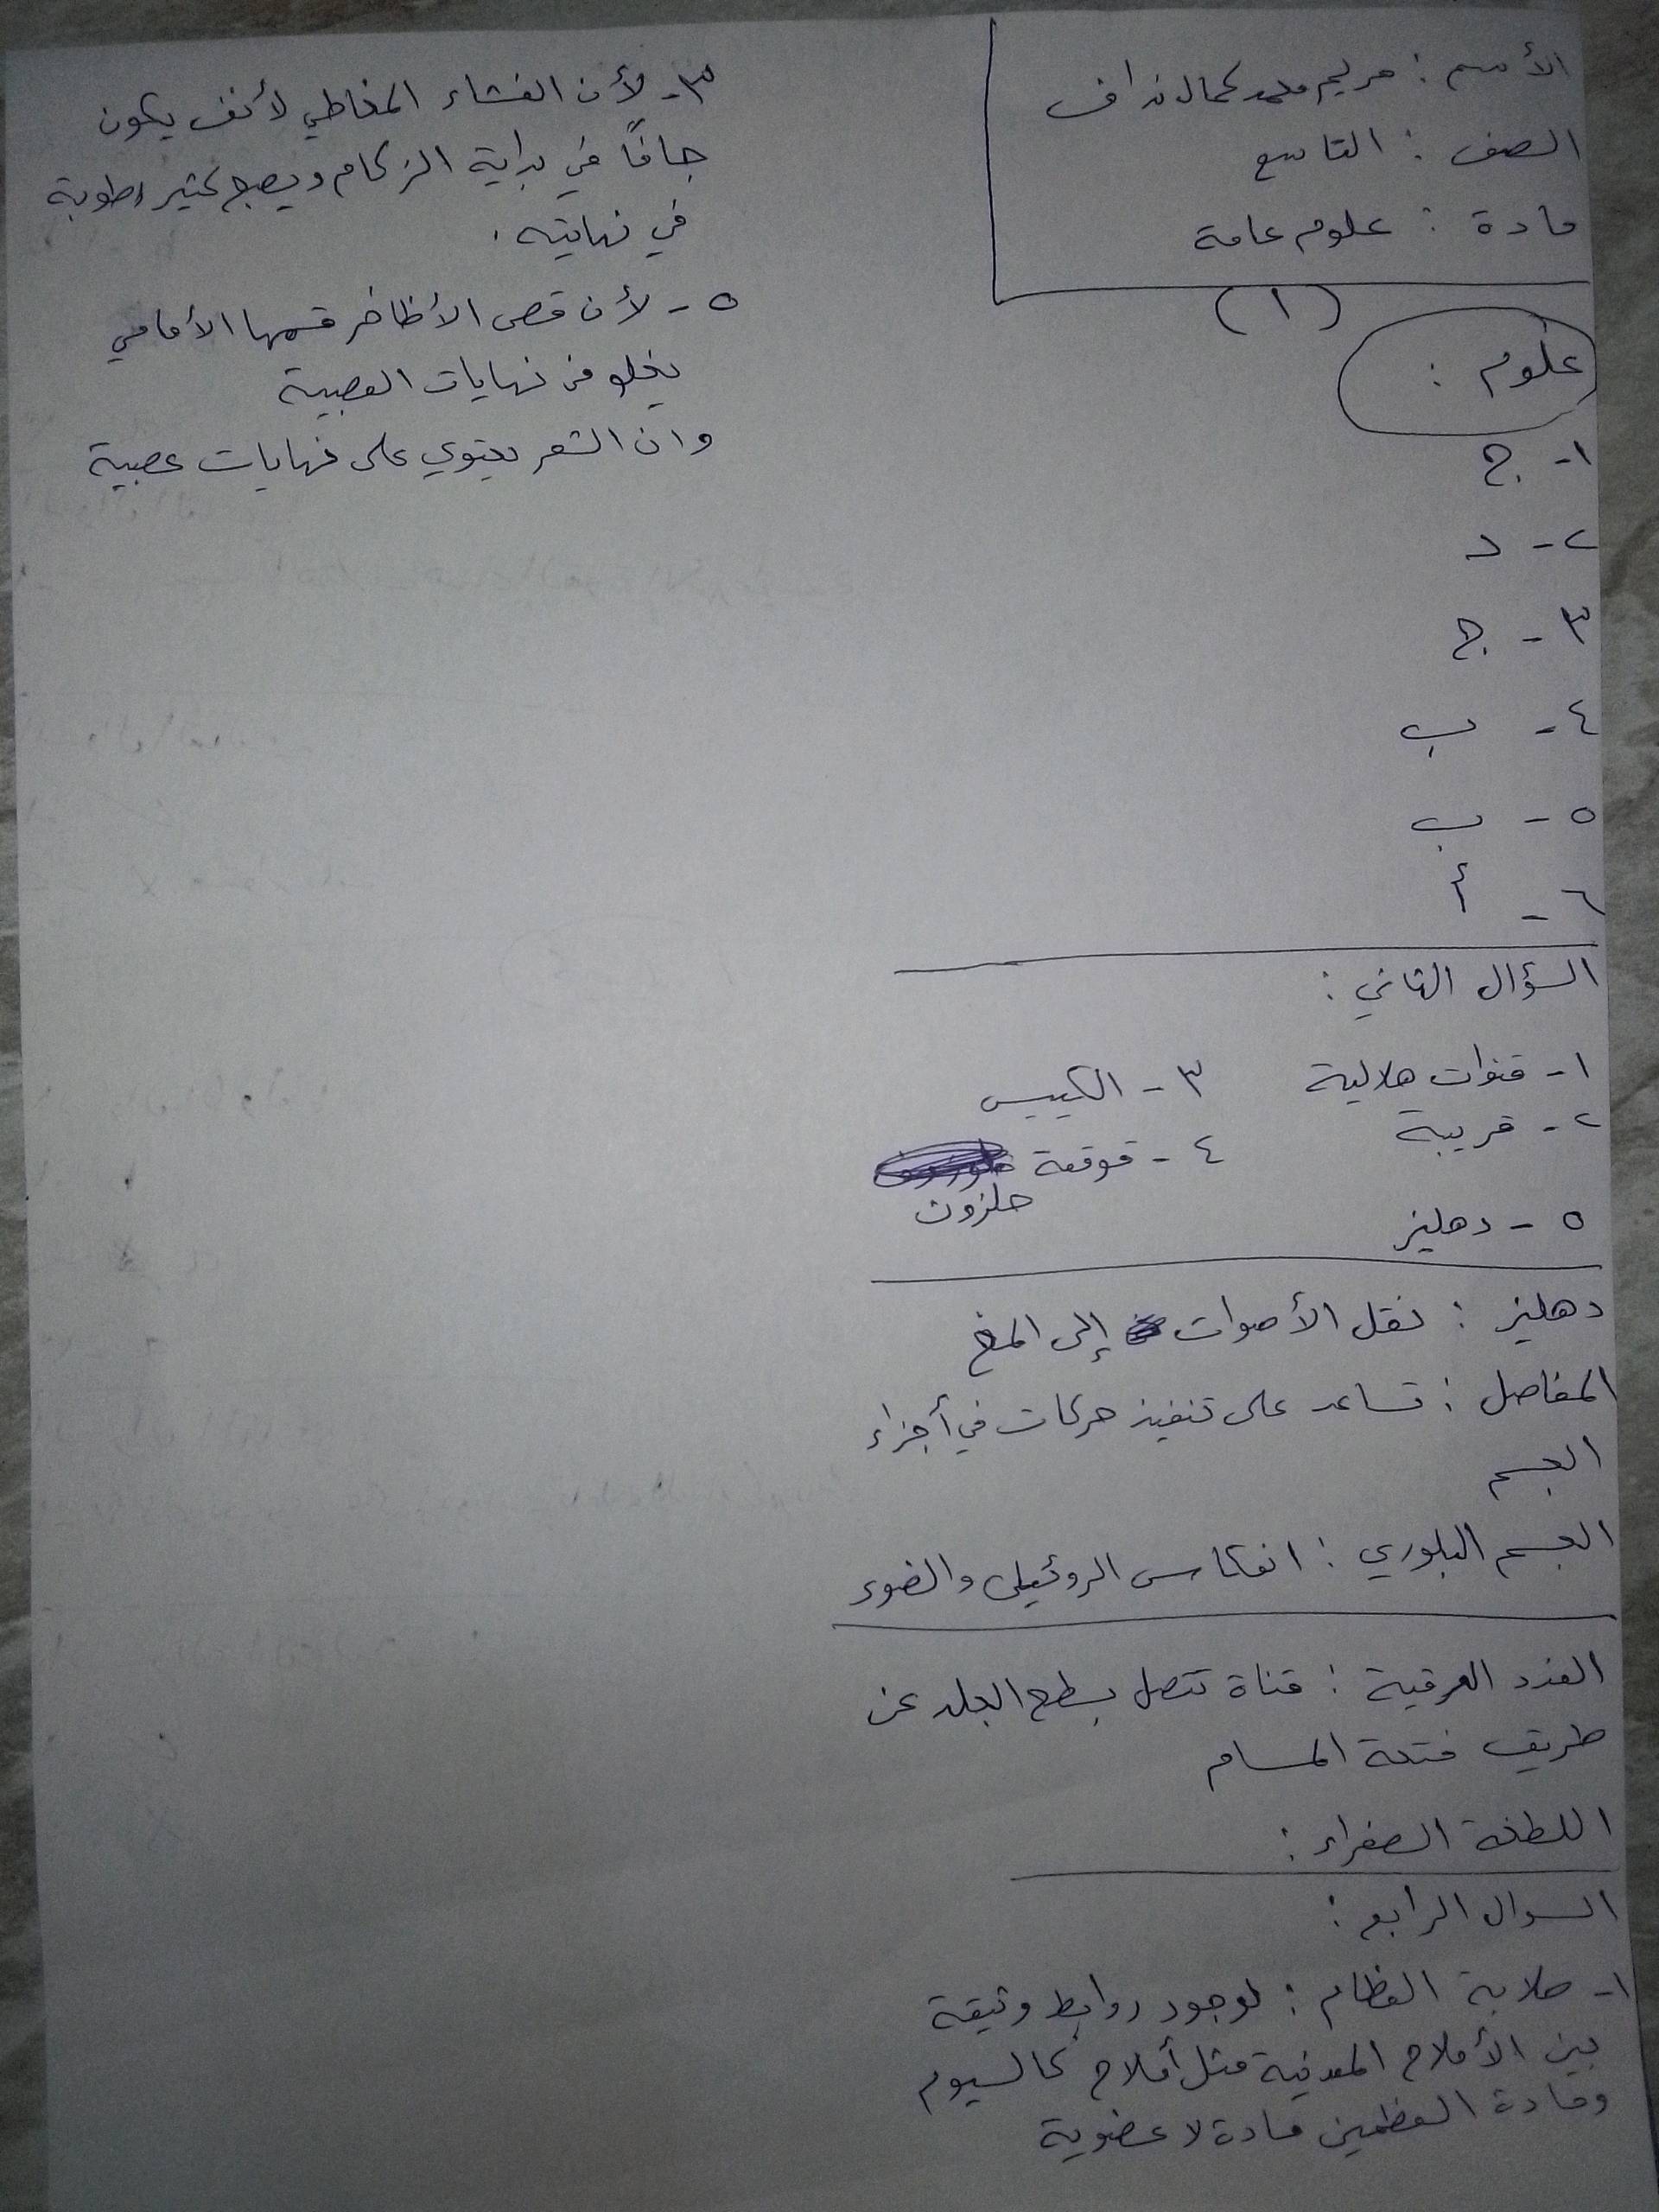 الأسم : مريم محمد كمال نداف
الصف : التاسع
مادة : علوم عامة
(١)
علوم :
١- ج
٢- د
٣- ج
٤- ب
٥- ب
٦- أ
السؤال الثاني :
١- قنوات هلالية
٢- قريبة
٣- الكييس
٤- قوقعة
حلزون
٥- دهليز
دهليز : نقل الأصوات إلى المخ
المفاصل : تساعد على تنفيذ حركات في أجزاء
الجسم
الجسم البلوري : انعكاس والضوء
الغدد العرقية : قناة تتصل بسطح الجلد عن
طريق فتحة المسام
اللطخة الصفراء :
السوال الرابع :
١- صلابة العظام : لوجود روابط وثيقة
بين الأملاح المعدنية مثل أملاح كالسيوم
ومادة العظمين مادة لا عضوية
٣- لأن الغشاء المخاطي لأنف يكون
جافاً في بداية الزكام ويصبح كثير رطوبة
في نهايته .
٥- لأن قص الأظافر قسمها الأمامي
يخلو من نهايات العصبية
وان الشعر يحتوي على نهايات عصبية